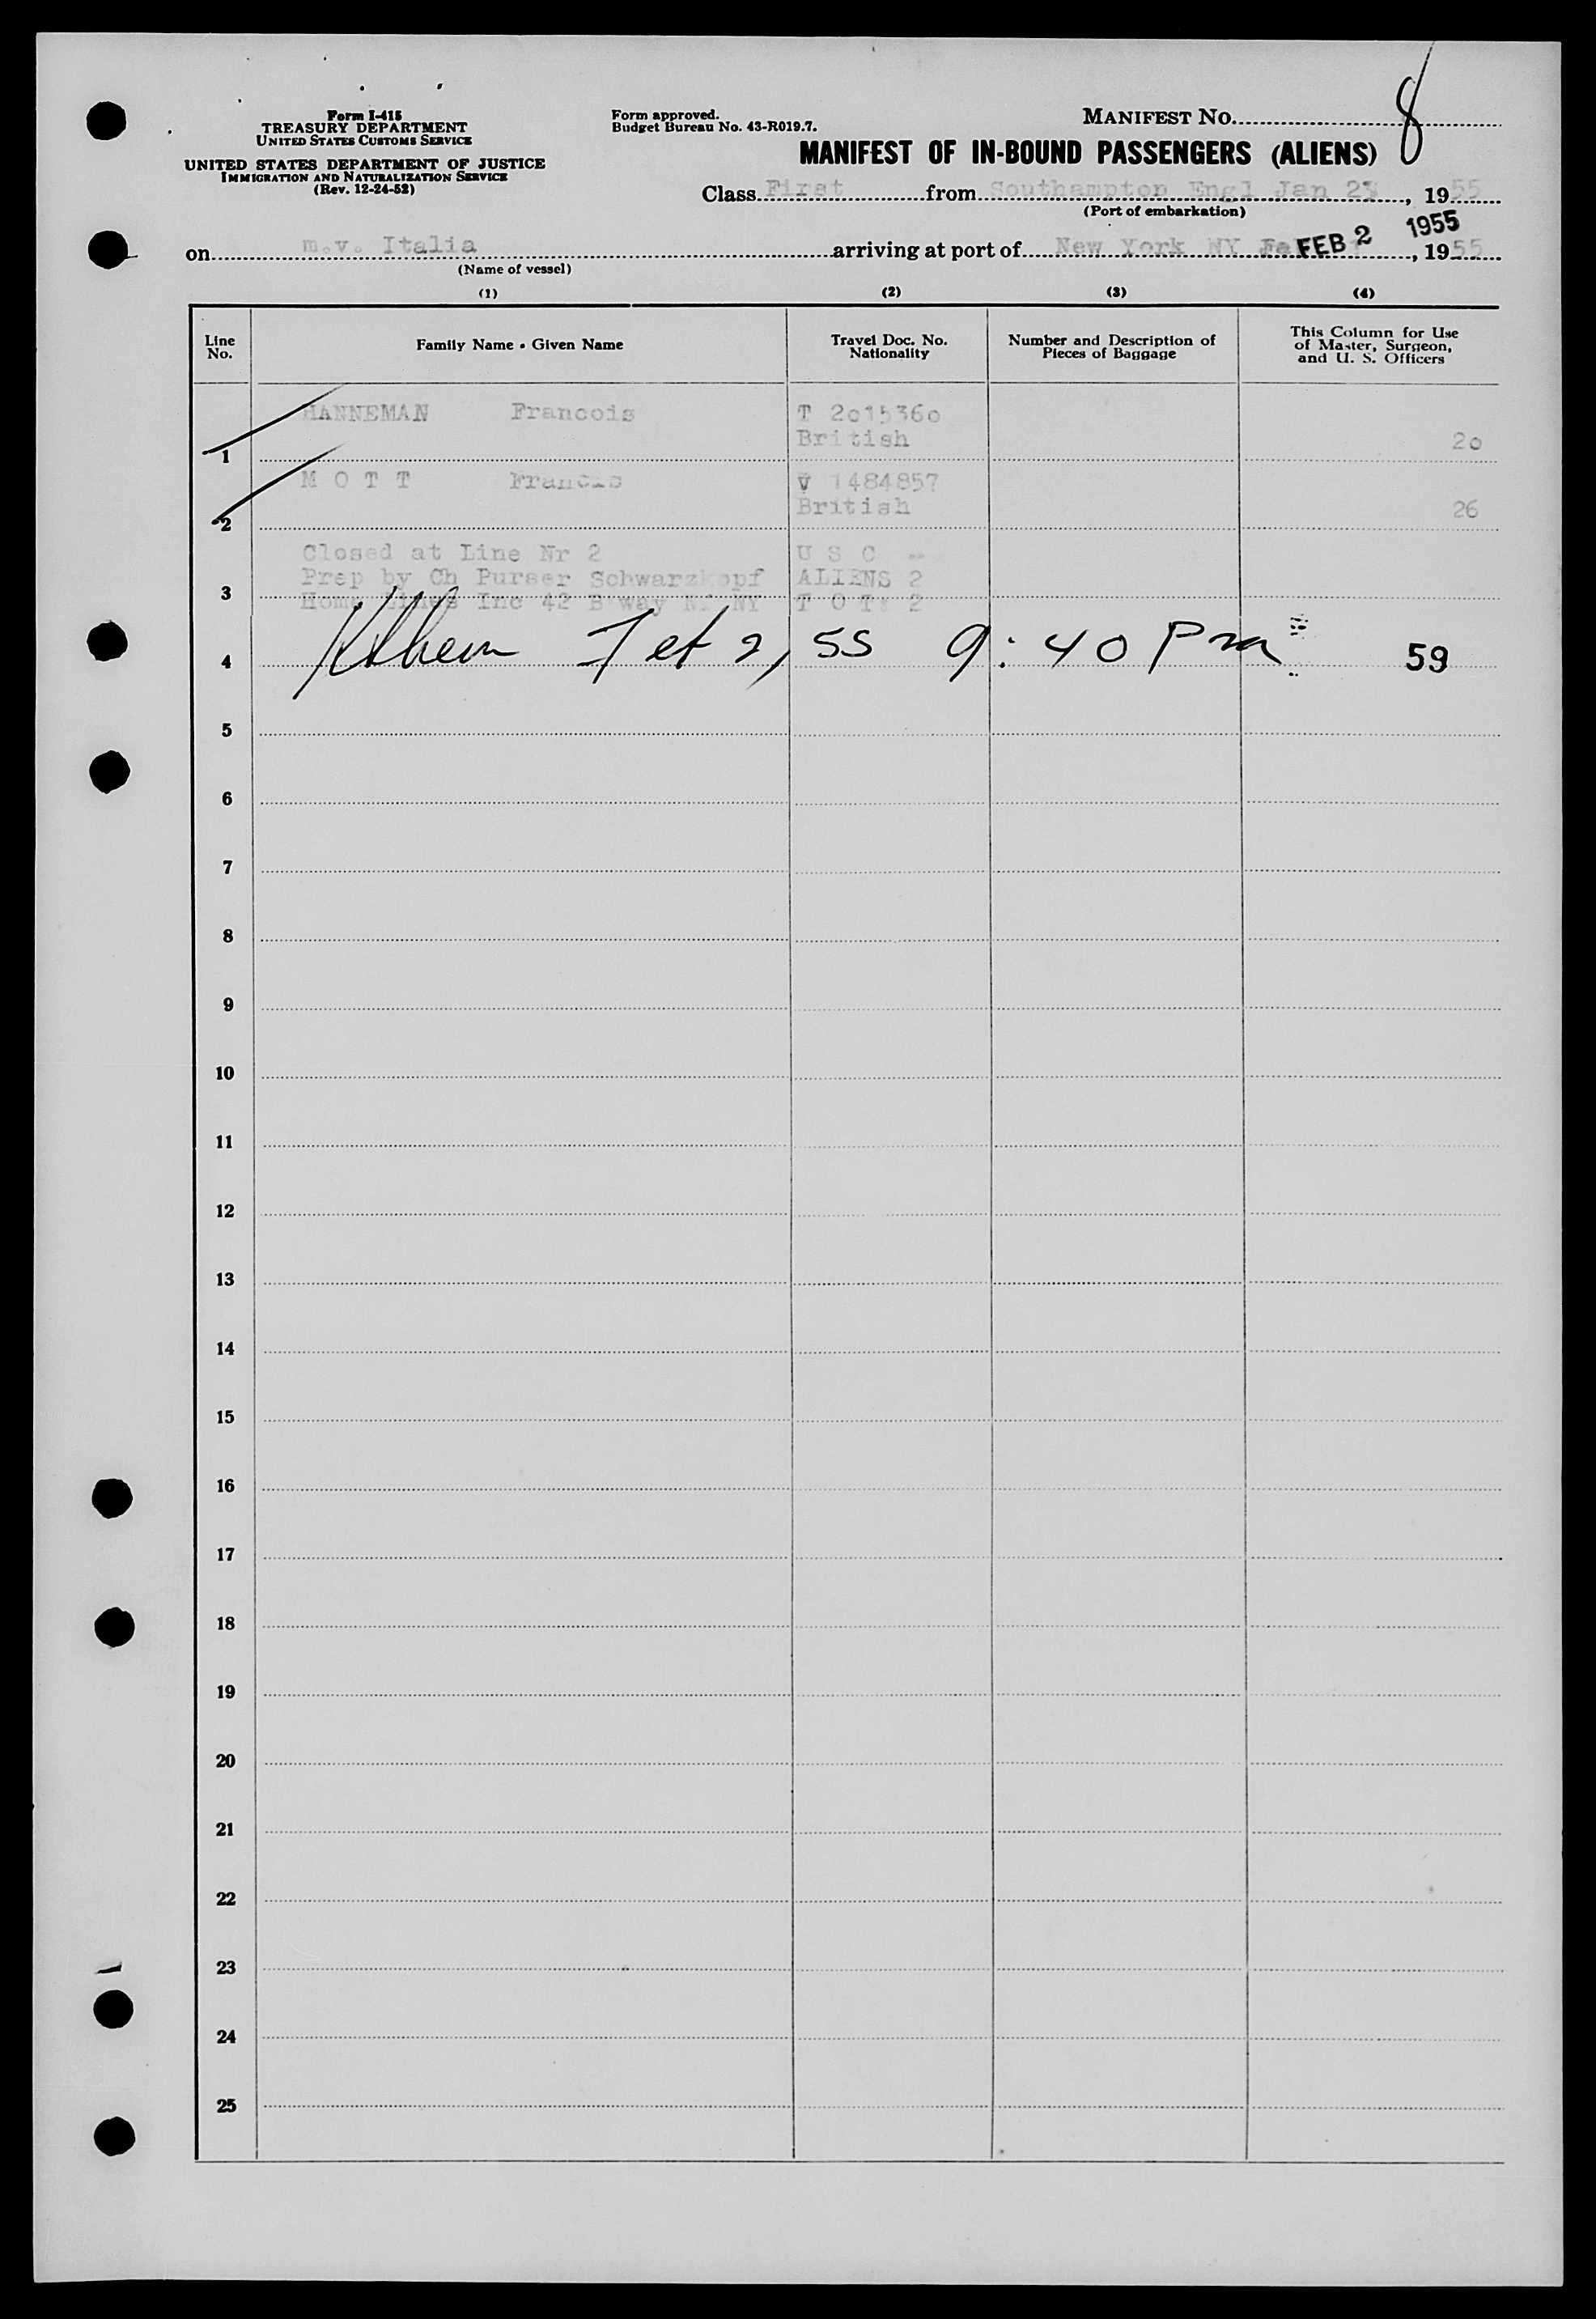 Form I-415
TREASURY DEPARTMENT
UNITED STATES CUSTOMS SERVICE
UNITED STATES DEPARTMENT OF JUSTICE
IMMIGRATION AND NATURALIZATION SERVICE
(Rev. 12-24-52)
Form approved.
Budget Bureau No. 43-R019.7.
MANIFEST No. 8
MANIFEST OF IN-BOUND PASSENGERS (ALIENS)
Class First from Southampton Engl Jan , 1955
(Port of embarkation)
on m.v. Italia arriving at port of New York NY FEB 2 1955, 1955
(Name of vessel)
(1) (2) (3) (4)
Line No. Family Name - Given Name Travel Doc. No. Nationality Number and Description of Pieces of Baggage This Column for Use of Master, Surgeon, and U. S. Officers
HANNEMAN Francois T 2015360
1 British 20
M O T T Francis V 1484857
2 British 26
Closed at Line Nr 2 U S C --
Prep by Ch Purser Schwarzkopf ALIENS 2
3 Home Lines Inc 42 B'way NY NY T O T: 2
4 Feb 2, 55 9:40 Pm 59
5
6
7
8
9
10
11
12
13
14
15
16
17
18
19
20
21
22
23
24
25